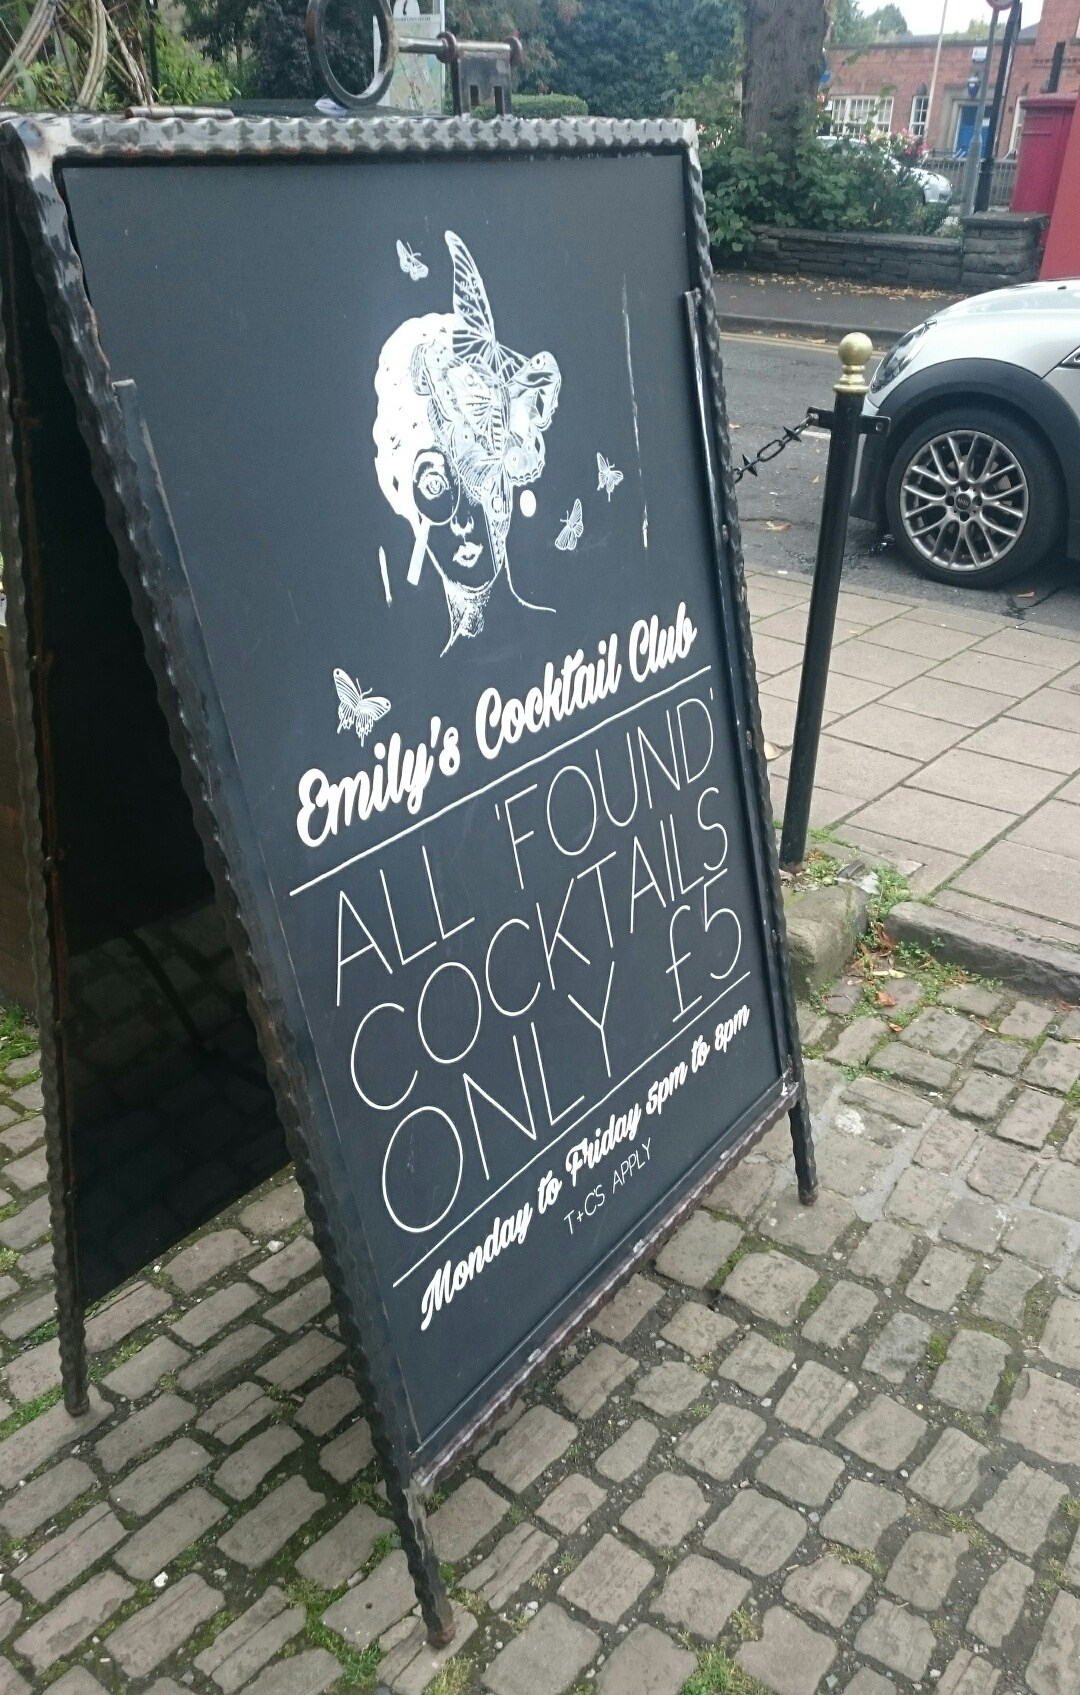 Emily's Cocktail Club
ALL 'FOUND'
COCKTAILS
ONLY £5
Monday to Friday 5pm to 8pm
T+C'S APPLY